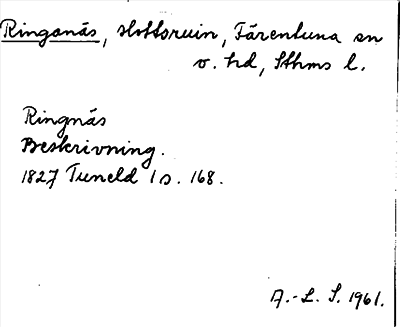 Ringanäs, slottsruin, Färentuna sn
o. hd, Sthms l.
Ringnäs
Beskrivning.
1827 Tuneld 1 s. 168.
A.-L. S. 1961.